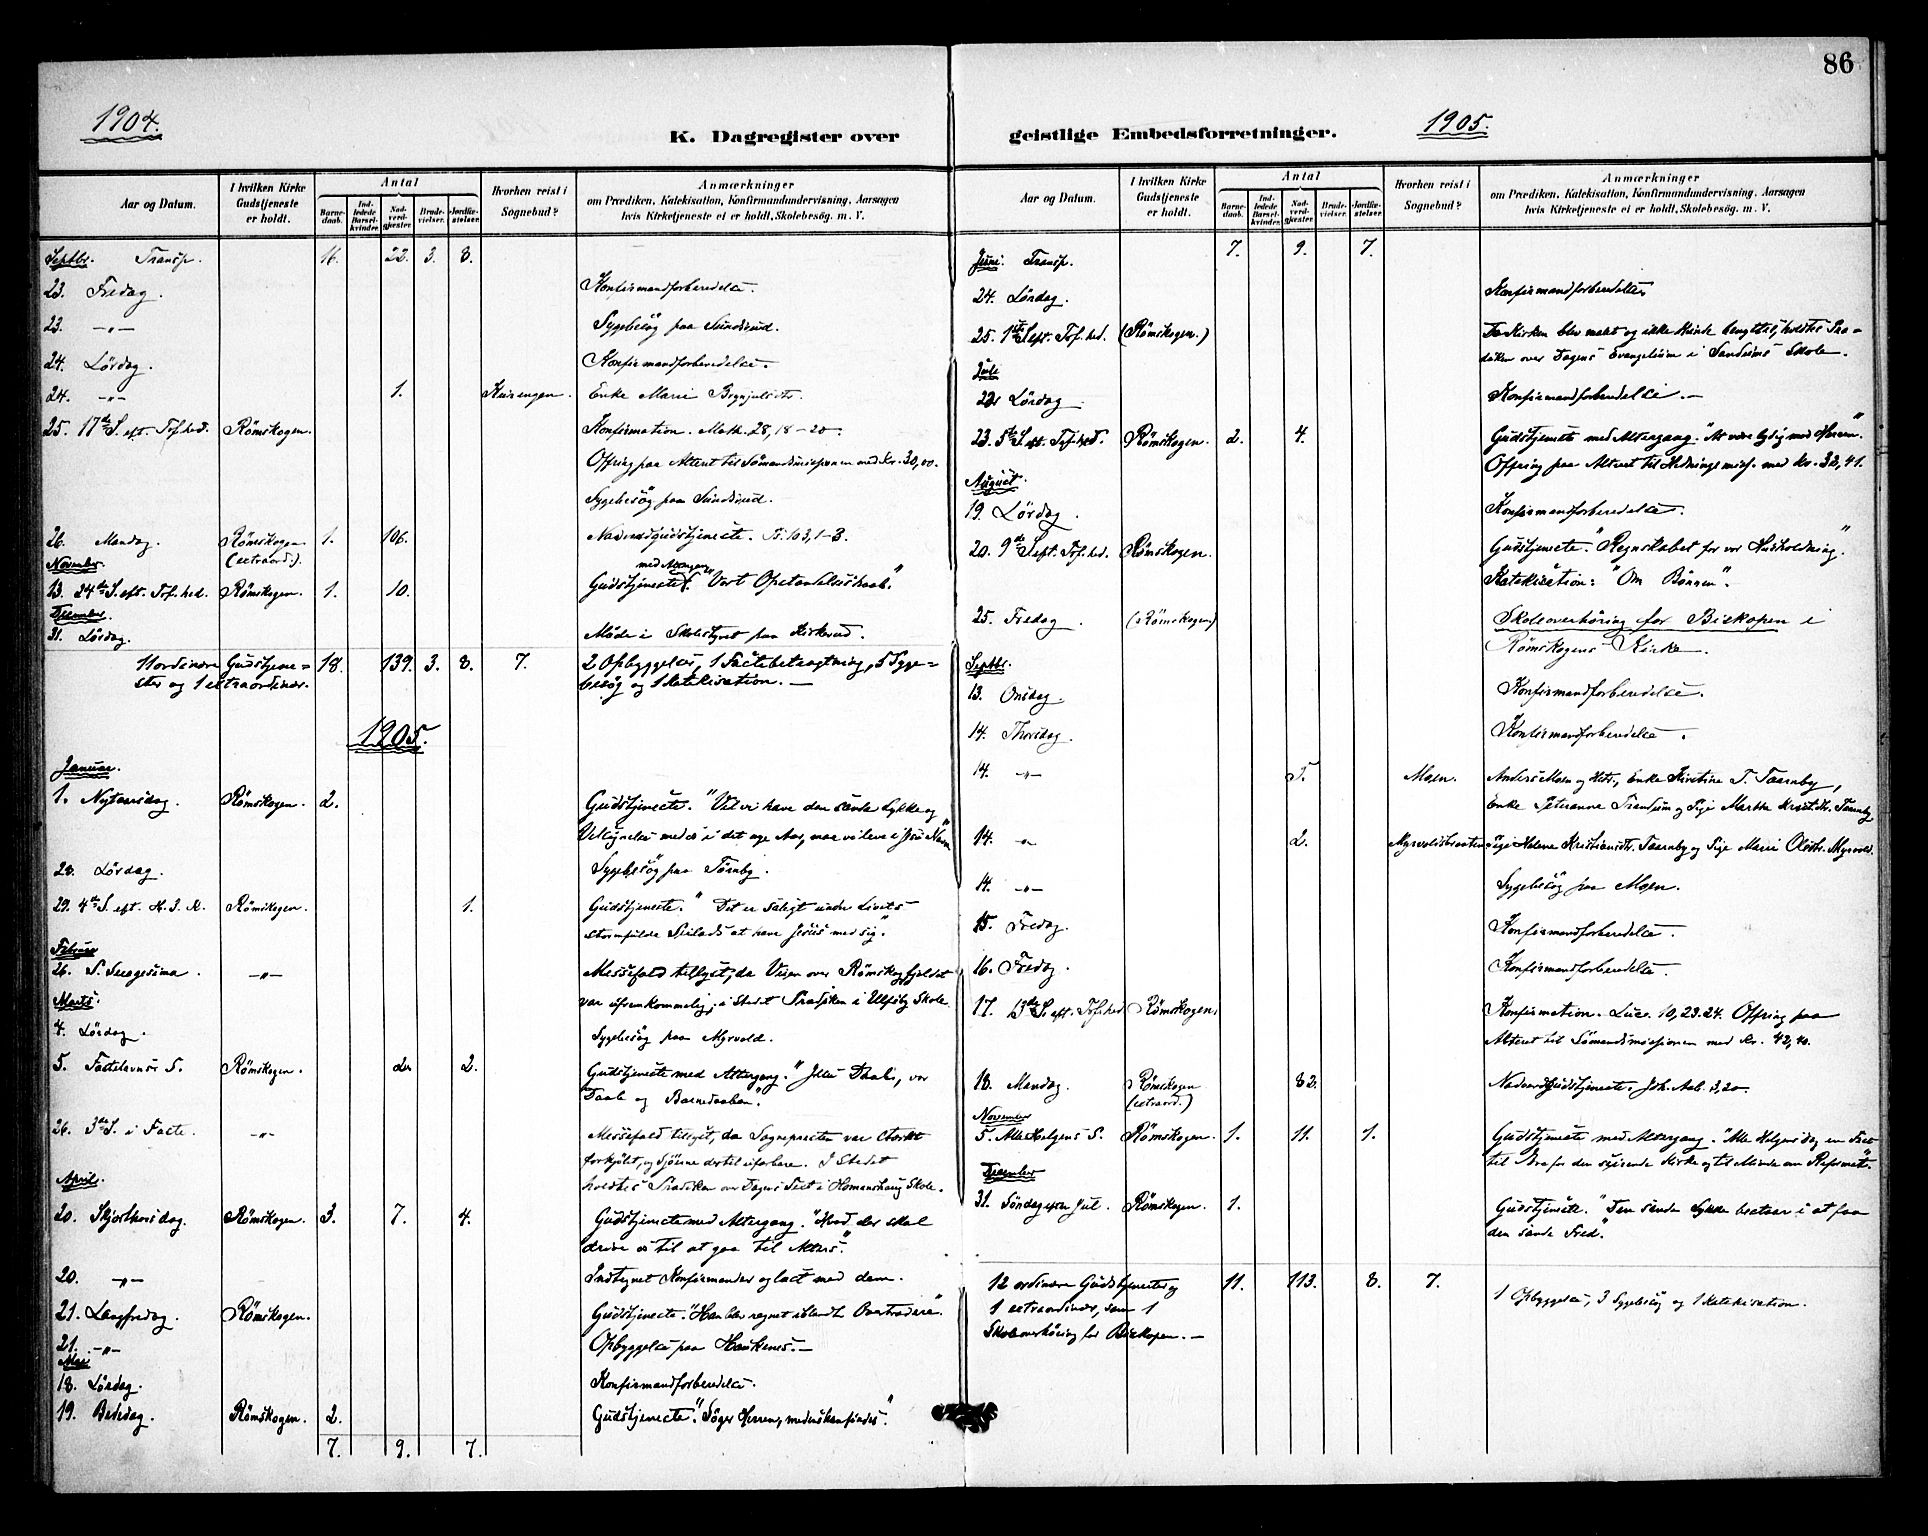 86
1904.
K. Dagregister over
Aar og Datum.
I hvilken Kirke Gudstjeneste er holdt.
Antal
Barnedaab.
Indledede Barselkvinder.
Nadverdgjester.
Brudevielser.
Jordfæstelser.
Hvorhen reist i Sognebud?
Anmærkninger
om Prædiken, Katekisation, Konfirmandundervisning, Aarsagen
hvis Kirketjeneste ei er holdt, Skolebesøg. m. V.
Septbr. Transp. 16. 22. 3. 8.
23. Fredag. Konfirmandforberedelse.
23. —„— Sygebesøg paa Sundsrud.
24. Lördag. Konfirmandforberedelse.
24. —„— 1. Enke Marie
25. 17de S. eft. Tref.hed. Römskogen. Konfirmation. Math. 28, 18–20.
Offring paa Alteret til Sömandsmissionen med Kr. 30,00.
Sygebesög paa Sundsrud.
26. Mandag. Römskogen (extraord.). 1. 106. Nadverdgudstjeneste. Ps. 103, 1–3.
November
13. 24de S. eft. Tref.hed. Römskogen. 1. 10. Gudstjeneste med Altergang. "Vort Opstandelseshaab."
December
31. Lördag. Möde i Skolestyret paa Kirkerud.
11 ordinære Gudstjene= 18. 139. 3. 8. 7. 2 Opbyggelser, 1 Fastebetragtning, 5 Syge=
ster og 1 extraordinær. besög og 1 Katekisation. —
1905.
Januar.
1. Nytaarsdag. Römskogen. 2. Gudstjeneste. "Vil vi have den sande Lykke og
Velsignelse med os i det nye Aar, maa vi leve i Jesu Navn"
28. Lördag. Sygebesög paa Törnby.
29. 4de S. eft. H. 3. K. Römskogen. 1. Gudstjeneste. "Det er saligt under Livets
stormfulde Seilads at have Jesus med sig."
Februar
26. S. Sexagesima. —„— Messefald tillyst, da Veien over Römskogfjeldet
var ufremkommelig, i Stedet Prædiken i Ulfsby Skole.
Marts.
4. Lördag. Sygebesög paa Myrvold.
5. Fastelavns S. Römskogen. 2. 2. Gudstjeneste med Altergang. "Jesu Daab, vor
Daab og Barnedaaben."
26. 3die S. i Faste. —„— Messefald tillyst, da Sognepresten var stærkt
forkjölet, og Sjöerne dertil ufarbare. I Stedet
holdtes Prædiken over Dagens Text i Homanshaug Skole.
April.
20. Skjærthorsdag. Römskogen. 3. 7. 4. Gudstjeneste med Altergang. "Hvad der skal
drive os til at gaa til Alters."
20. —„— Indtegnet Konfirmander og læst med dem.
21. Langfredag. Römskogen. Gudstjeneste. "Han blev regnet iblandt Overtrædere".
21. —„— Opbyggelse paa Haukenes. —
Mai
18. Lördag. Konfirmandforberedelse.
19. Bededag. Römskogen. 2. Gudstjeneste. "Söger Herren, medens han findes".
7. 9. 7.
geistlige Embedsforretninger.
1905.
Aar og Datum.
I hvilken Kirke Gudstjeneste er holdt.
Antal
Barnedaab.
Indledede Barselkvinder.
Nadverdgjester.
Brudevielser.
Jordfæstelser.
Hvorhen reist i Sognebud?
Anmærkninger
om Prædiken, Katekisation, Konfirmandundervisning, Aarsagen
hvis Kirketjeneste ei er holdt, Skolebesøg. m. V.
Juni. Transp. 7. 9. 7.
24. Lördag. Konfirmandforberedelse
25. 1ste S. eft. Tref.hed. (Römskogen.) Da Kirken blev malt og ikke kunde benyttes, holdtes Præ=
diken over Dagens Evangelium i Sandsums Skole.
Juli
22 Lördag Konfirmandforberedelse. —
23. 5te S. eft. Tref.hed. Römskogen. 2. 4. Gudstjeneste med Altergang. "At være lydig mod Herren."
Offring paa Alteret til Hedningemiss. med Kr. 33,41.
August.
19. Lördag. Konfirmandforberedelse.
20. 9de S. eft. Tref.hed. Römskogen. Gudstjeneste. "Regnskabet for vor Husholdning."
Katekisation: "Om Bönnen".
25. Fredag. (Römskogen) Skoleoverhöring for Biskopen i
Römskogens Kirke.
Septbr.
13. Onsdag Konfirmandforberedelse.
14. Thorsdag. Konfirmandforberedelse.
14. —„— 5. Moen. Anders Moen og Hstr., Enke Kirstine T. Taarnby,
Enke Peteranne Trandsum og Pige Martha Kristdtr. Taarnby
14. —„— 2. Myrvoldsbraaten Pige Helene Kristiansdtr. Taarnby og Pige Marie Olsdtr. Myrvold.
14. —„— Sygebesög paa Moen.
15. Fredag. Konfirmandforberedelse.
16. Fredag. Konfirmandforberedelse.
17. 13de S. eft. Tref.hed Römskogen. Konfirmation. Luc. 10, 23.24. Offring paa
Alteret til Sömandsmissionen med Kr. 42,40.
18. Mandag. Römskogen (extraord.) 82. Nadverdgudstjeneste. Joh. Aab. 3,20.
November
5. Alle Helgens S. Römskogen. 1. 11. 1. Gudstjeneste med Altergang. "Alle Helgensdag en Fest
til Ære for den seirende Kirke og til Minde om Reformat".
December
31. Söndag efter Jul. Römskogen. 1. Gudstjeneste. "Den sande Lykke bestaar i at faa
den sande Fred".
12 ordinære Gudstjenester og 11. 113. 8. 7. 1 Opbyggelse, 3 Sygebesög og 1 Katekisation.
1 extraordinær, samt 1
Skoleoverhöring for Biskopen. —